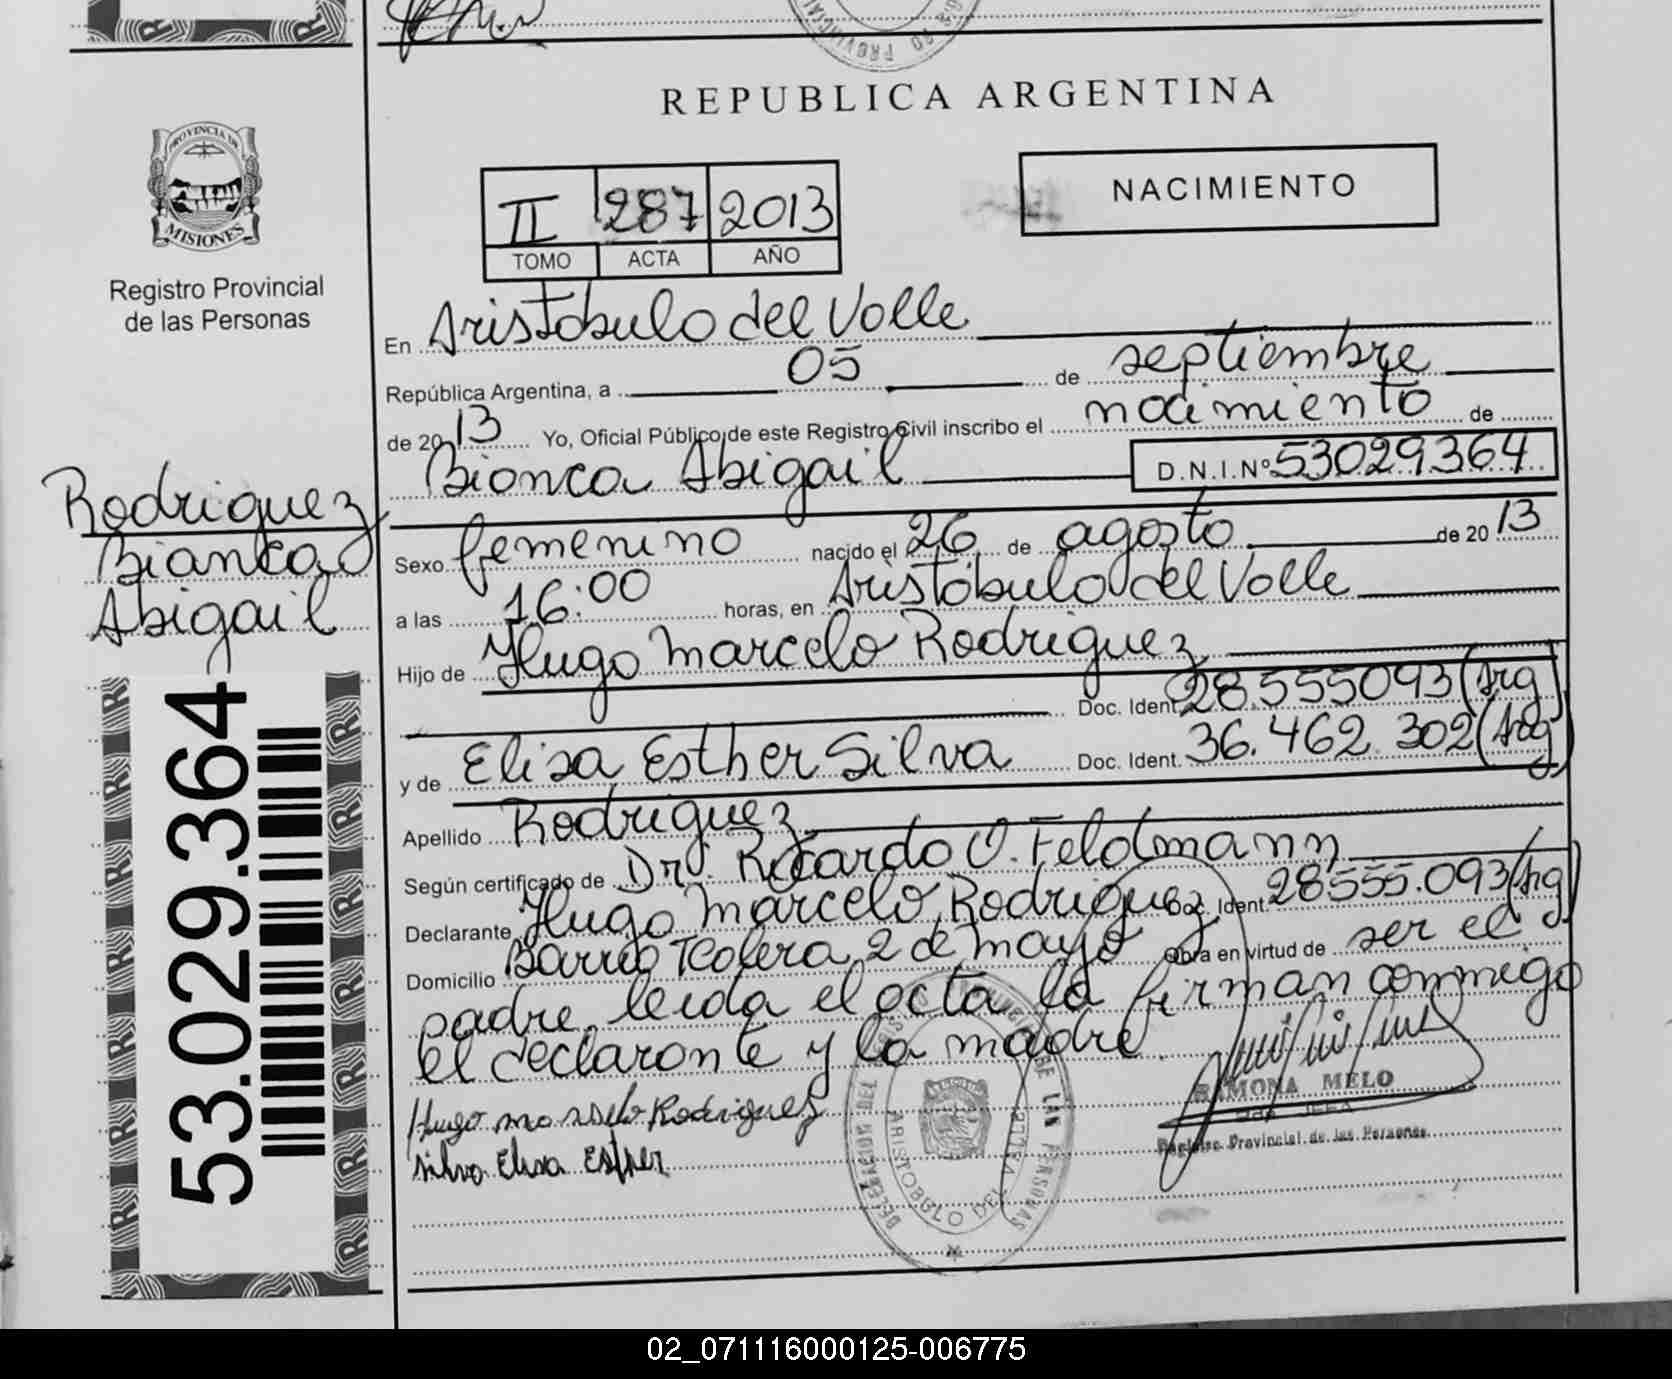 REPUBLICA ARGENTINA
PROVINCIA DE
MISIONES
Registro Provincial
de las Personas
II 287 2013
TOMO ACTA AÑO
NACIMIENTO
En Aristóbulo del Valle
República Argentina, a 05 de septiembre
de 2013 Yo, Oficial Público de este Registro Civil inscribo el nacimiento de
Bianca Abigail D.N.I.Nº 53029364
Rodriguez
Bianca
Abigail
53.029.364
Sexo femenino nacido el 26 de agosto de 2013
a las 16:00 horas, en Aristóbulo del Valle
Hijo de Hugo Marcelo Rodriguez
Doc. Ident. 28.555093 (Arg)
y de Elisa Esther Silva Doc. Ident. 36.462.302 (Arg)
Apellido Rodriguez
Según certificado de Dr. Ricardo O. Feldmann
Declarante Hugo Marcelo Rodriguez Doc. Ident. 28555.093 (Arg)
Domicilio Barrio Tealera 2 de mayo Obra en virtud de ser el
padre, leida el acta la firman conmigo
el declarante y la madre.
Hugo marselo Rodriguez
Silva Elisa Esther
RAMONA MELO
Registro Provincial de las Personas
02_071116000125-006775